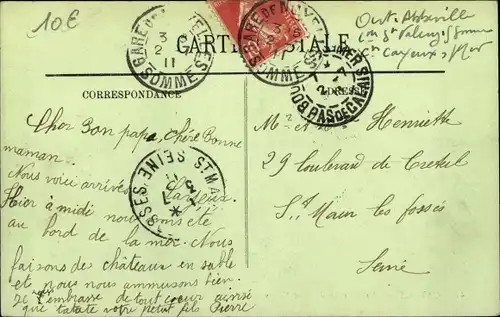 10€
Arrt Abbeville
Con St Valery s/Somme
Cne Cayeux s/Mer
GARE DE NOYELLES
3
2
11
SOMME
GARE DE NOYELLES
SOMME
PAS DE CA
CARTE POSTALE
CORRESPONDANCE
ADRESSE
Cher Bon papa, chère Bonne
maman.
Nous voici arrivés à Cayeux.
Hier à midi nous
au bord de la mer. Nous
faisons de châteaux en sable
et nous nous ammusons bien.
Je t'embrasse de tout coeur ainsi
que tatate votre petit fils Pierre
ST MA
FOSSES SEINE
Mr et Henriette
29 boulevard de Creteil
St Maur les fossés
Seine